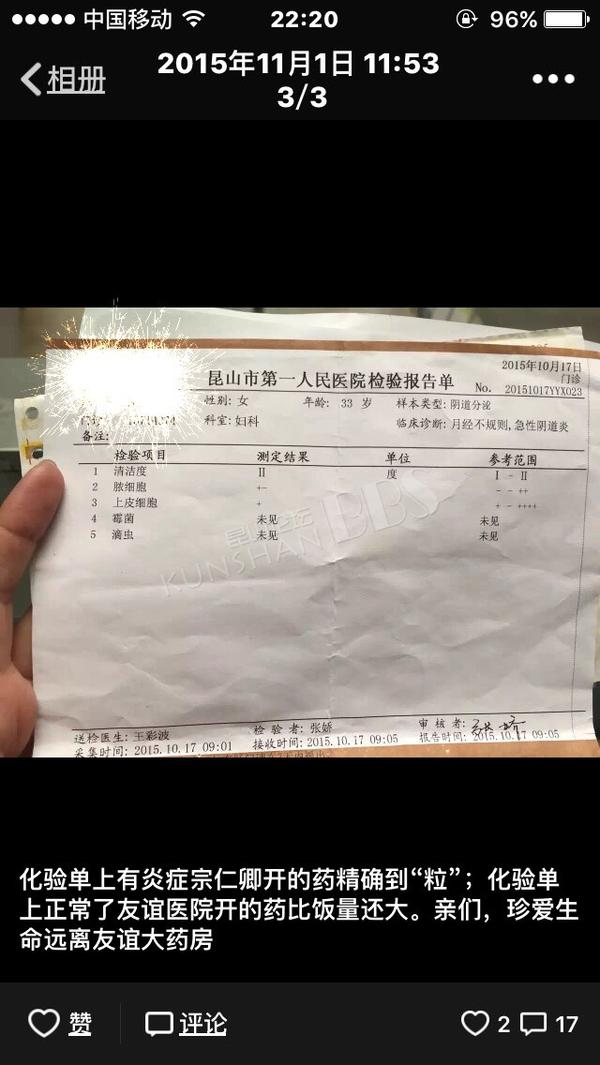 中国移动 22:20 96%
相册 2015年11月1日 11:53 3/3
2015年10月17日
昆山市第一人民医院检验报告单 门诊
No. 20151017YYX023
性别: 女 年龄: 33 岁 样本类型: 阴道分泌
科室: 妇科 临床诊断: 月经不规则, 急性阴道炎
备注:
检验项目 测定结果 单位 参考范围
1 清洁度 II 度 I - II
2 脓细胞 +- - - ++
3 上皮细胞 + + - ++++
4 霉菌 未见 未见
5 滴虫 未见 未见
KUNSHAN BBS
送检医生: 王彩波 检 验 者: 张娇 审 核 者:
采集时间: 2015.10.17 09:01 接收时间: 2015.10.17 09:05 报告时间: 2015.10.17 09:05
化验单上有炎症宗仁卿开的药精确到“粒”；化验单
上正常了友谊医院开的药比饭量还大。亲们，珍爱生
命远离友谊大药房
赞 评论 2 17